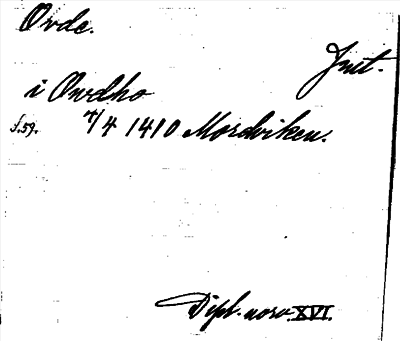 Ovde.
Jmt.
i Owdho
s.59. 4/4 1410 Mordviken.
Dipl. norv. XVI.